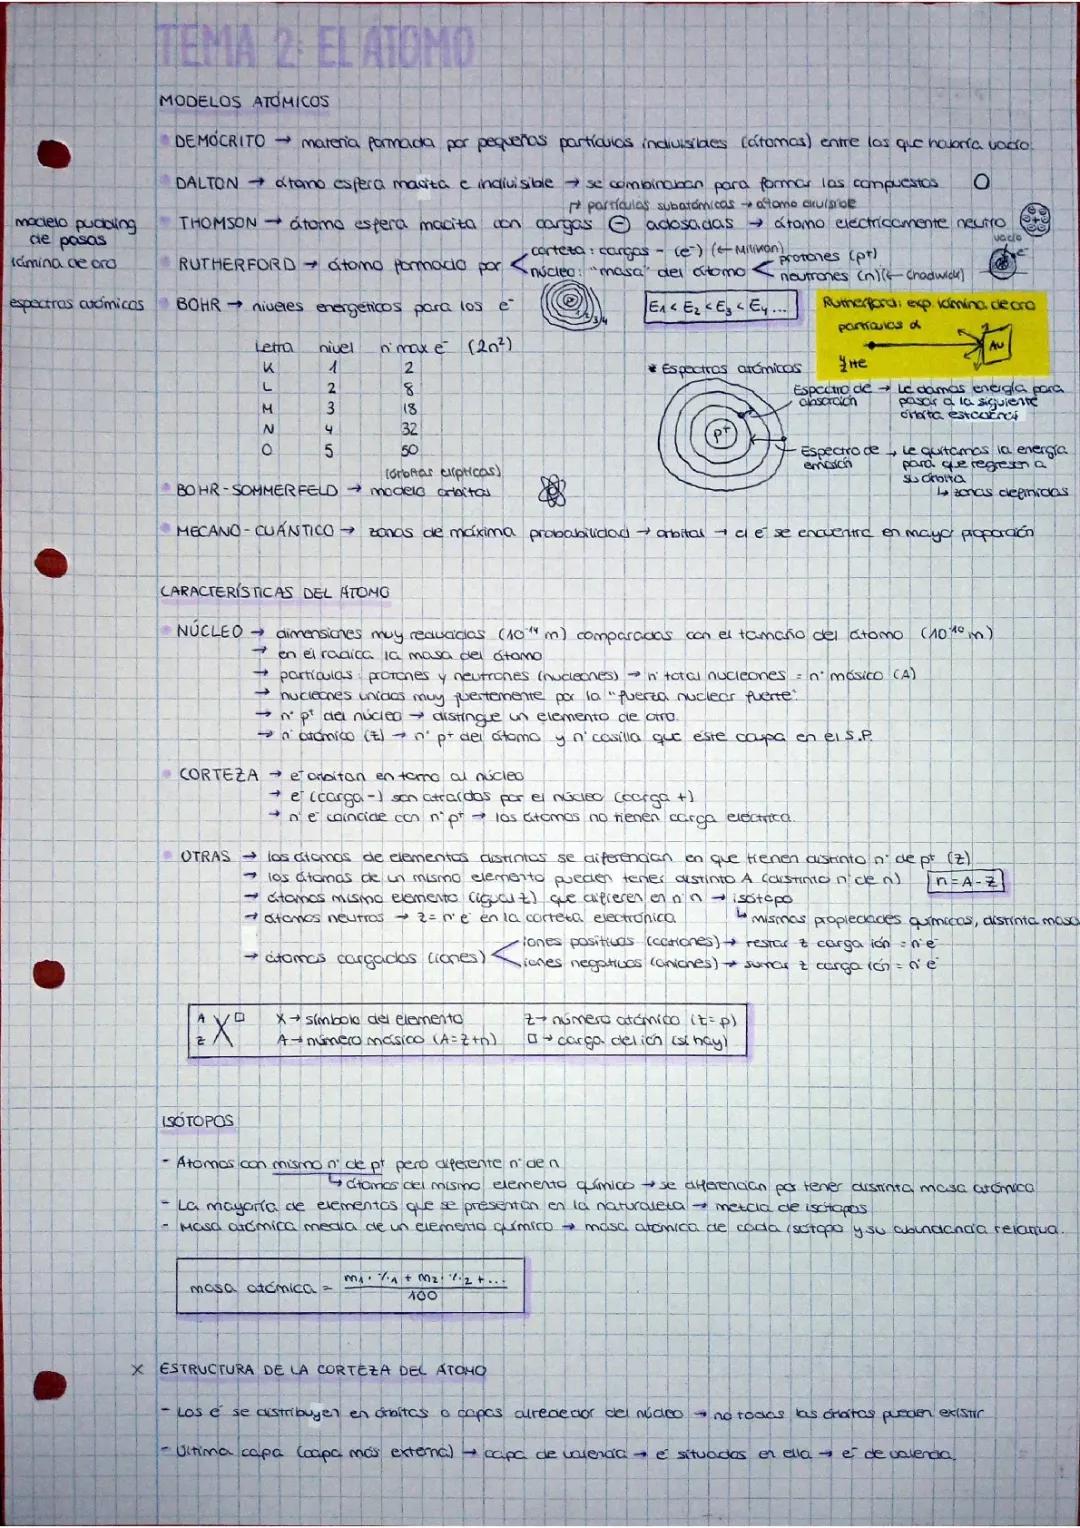 TEMA 2: EL ÁTOMO
MODELOS ATÓMICOS
DEMÓCRITO → materia formada por pequeñas partículas indivisibles (átomos) entre las que habría vacío.
DALTON → átomo esfera maciza e indivisible → se combinaban para formar los compuestos
↱ partículas subatómicas → átomo divisible
modelo pudding de pasas
THOMSON → átomo esfera maciza con cargas ⊖ adosadas → átomo eléctricamente neutro
lámina de oro
RUTHERFORD → átomo formado por
corteza: cargas - (e⁻) (← Millikan)
núcleo: "masa" del átomo
protones (p+)
neutrones (n) (← Chadwick)
vacío
e⁻
espectros atómicos
BOHR → niveles energéticos para los e⁻
1 2 3 4
E1 < E2 < E3 < E4 ...
Rutherford: exp. lámina de oro
partículas α
4 2 He
Au
Letra nivel nº max e⁻ (2n²)
K 1 2
L 2 8
M 3 18
N 4 32
O 5 50
* Espectros atómicos
p+
Espectro de absorción → Le damos energía para pasar a la siguiente órbita
Espectro de emisión → Le quitamos la energía para que regresen a su órbita
↳ zonas definidas
(órbitas elípticas)
BOHR-SOMMERFELD → modelo orbitas
MECANO-CUÁNTICO → zonas de máxima probabilidad → orbital → el e⁻ se encuentra en mayor proporción
CARACTERÍSTICAS DEL ÁTOMO
NÚCLEO → dimensiones muy reducidas (10⁻¹⁴ m) comparadas con el tamaño del átomo (10⁻¹⁰ m)
→ en él radica la masa del átomo
→ partículas: protones y neutrones (nucleones) → nº total nucleones = nº másico (A)
→ nucleones unidos muy fuertemente por la "fuerza nuclear fuerte".
→ nº p+ del núcleo → distingue un elemento de otro.
→ nº atómico (z) → nº p+ del átomo y nº casilla que este ocupa en el S.P.
CORTEZA → e⁻ orbitan en torno al núcleo
→ e⁻ (carga -) son atraídos por el núcleo (carga +)
→ nº e⁻ coincide con nº p+ → los átomos no tienen carga eléctrica.
OTRAS → los átomos de elementos distintos se diferencian en que tienen distinto nº de p+ (z)
→ los átomos de un mismo elemento pueden tener distinto A (distinto nº de n) n = A - z
→ átomos mismo elemento (igual z) que difieren en nº n → isótopo
↳ mismas propiedades químicas, distinta masa
→ átomos neutros → z = nº e⁻ en la corteza electrónica
→ átomos cargados (iones)
iones positivos (cationes) → restar z carga ión = nº e⁻
iones negativos (aniones) → sumar z carga ión = nº e⁻
A z X □
X → símbolo del elemento z → número atómico (z = p)
A → número másico (A = z + n) □ → carga del ión (si hay)
ISÓTOPOS
- Átomos con mismo nº de p+ pero diferente nº de n
↳ átomos del mismo elemento químico → se diferencian por tener distinta masa atómica
- La mayoría de elementos que se presentan en la naturaleza → mezcla de isótopos
- Masa atómica media de un elemento químico → masa atómica de cada isótopo y su abundancia relativa.
masa atómica = m1 · %1 + m2 · %2 + ... / 100
x ESTRUCTURA DE LA CORTEZA DEL ÁTOMO
- Los e⁻ se distribuyen en órbitas o capas alrededor del núcleo → no todas las órbitas pueden existir
- Última capa (capa más externa) → capa de valencia → e⁻ situados en ella → e⁻ de valencia.